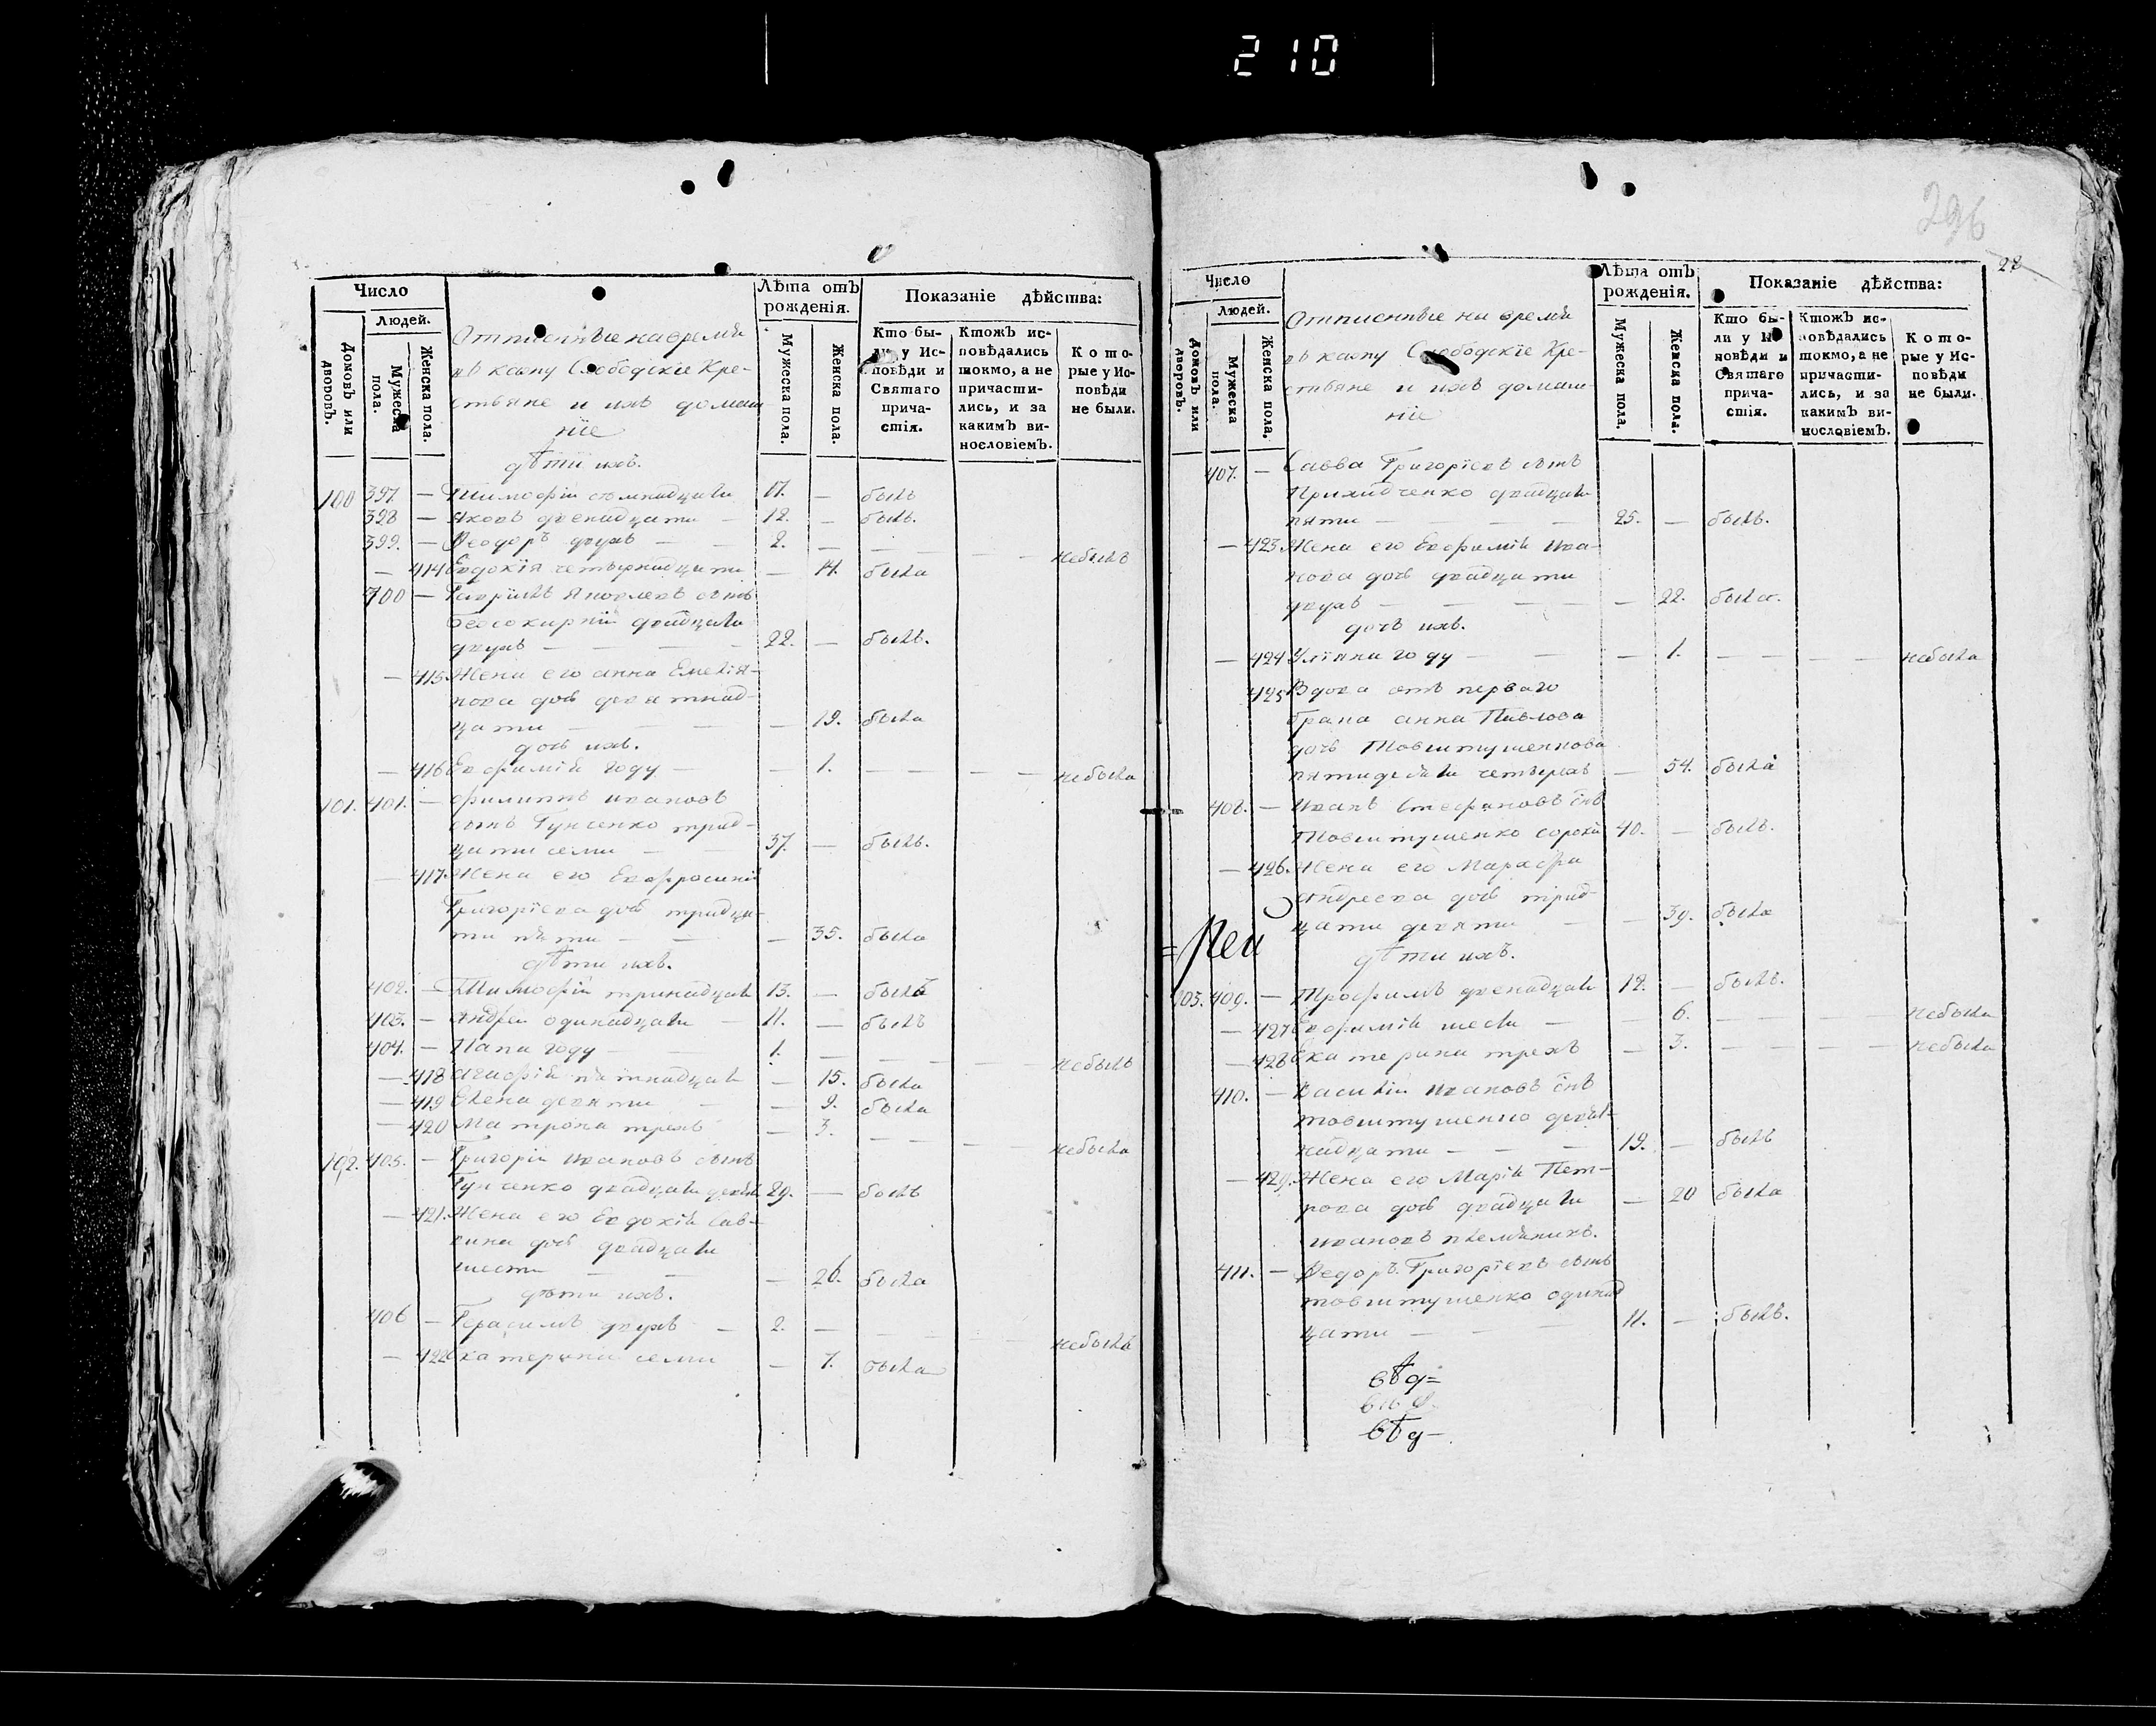 210
296
28
Число
Людей.
Домовъ или дворовъ.
Мужеска пола.
Женска пола.
Отписнныe на время
въ казну Слободскіе Кре-
стьяне и ихъ домаш
ніе
Лѣта отъ рожденія.
Мужеска пола.
Женска пола.
Показаніе дѣйства:
Кто бы-
ли у Ис-
повѣди и
Святаго
прича-
стія.
Ктожъ ис-
повѣдались
токмо, а не
причасти-
лись, и за
какимъ ви-
нословіемъ.
Кото-
рые у Ис-
повѣди
не были.
дѣти ихъ.
100 397. — Тимофій семнадцати 17. — былъ
398 — Яковъ двенадцати — 12. — былъ.
399. — Ѳеодоръ двухъ — 2. — — — небылъ
— 414 Евдокія четырнадцати — 14. была
400 — Гавріилъ Яковлевъ сынъ
двадцати
двухъ — 22. — былъ.
— 415 Жена его анна Емелія-
нова дочь девятнад-
цати — — 19. была
дочь ихъ.
— 416 Евфимія году — — 1. — — — небыла
101. 401. — филиппъ ивановъ
сынъ Гунченко трид-
цати семи — 37. — былъ.
— 417. Жена его Евфросинія
Григоріева дочь тридца-
ти пяти — — 35. была
дѣти ихъ.
402. — Тимофій тринадцати 13. — былъ
403. — Андрей одинадцати — 11. — былъ
404. — году — 1. — — — небылъ
— 418 Агафія пятнадцати — 15. была
— 419 Елена девяти — — 9. была
— 420 Матрона трехъ — 3. — — — небыла
102. 405. — Григорій ивановъ сынъ
Гунченко двадцати девяти 29. — былъ
— 421. Жена его Евдокія Сав-
вина дочь двадцати
шести — — 26. была
дѣти ихъ.
406 — Герасимъ двухъ — 2. — — — небылъ
— 422 Екатерина семи — 7. была
Число
Людей.
Домовъ или дворовъ.
Мужеска пола.
Женска пола.
Отписнныe на время
въ казну Слободскіе Кре-
стьяне и ихъ домаш-
ніе
Лѣта отъ рожденія.
Мужеска пола.
Женска пола.
Показаніе дѣйства:
Кто бы-
ли у Ис-
повѣди и
Святаго
прича-
стія.
Ктожъ ис-
повѣдались
токмо, а не
причасти-
лись, и за
какимъ ви-
нословіемъ.
Кото-
рые у Ис-
повѣди
не были.
407. — Савва Григоріевъ сынъ
Приходченко двадцати
пяти — — — 25. — былъ.
— 423 Жена его Евфимія ива-
нова дочь двадцати
двухъ — — — — 22. была.
дочь ихъ.
— 424 Уліяна году — — — 1. — — — небыла
425 Вдова отъ перваго
брака анна Павлова
дочь Товштушенкова
пятидесяти четырехъ — 54. была
408. — Иванъ Стефановъ снъ
Товштушенко сорока 40. — былъ.
— 426. Жена его Марфа
андреева дочь трид-
цати девяти — — 39. была
дѣти ихъ.
103. 409. — Трофимъ двенадцати 12. — былъ.
— 427 Евфимія шести — — 6. — — — небыла
— 428 Екатерина трехъ — 3. — — — небыла
410. — Василій ивановъ снъ
товштушенко девят-
надцати — — 19. — былъ
— 429. Жена его Марія Пет-
рова дочь двадцати — 20 была
ивановъ племяникъ.
411. — Ѳедоръ Григоріевъ сынъ
товштушенко одинад
цати — — 11. — былъ.